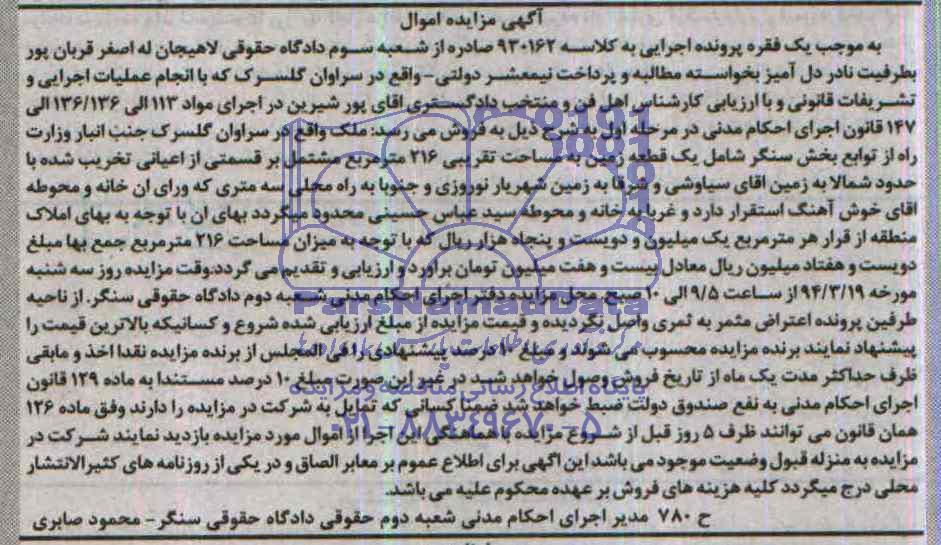 آگهی مزایده اموال
به موجب یک فقره پرونده اجرایی به کلاسه ۹۳۰۱۶۲ صادره از شعبه سوم دادگاه حقوقی لاهیجان له اصغر قربان پور
بطرفیت نادر دل آمیز بخواسته مطالبه و پرداخت نیمعشر دولتی- واقع در سراوان گلسرک که با انجام عملیات اجرایی و
تشریفات قانونی و با ارزیابی کارشناس اهل فن و منتخب دادگستری اقای پور شیرین در اجرای مواد ۱۱۳ الی ۱۳۶/۱۳۶ الی
۱۴۷ قانون اجرای احکام مدنی در مرحله اول به شرح ذیل به فروش می رسد: ملک واقع در سراوان گلسرک جنب انبار وزارت
راه از توابع بخش سنگر شامل یک قطعه زمین به مساحت تقریبی ۲۱۶ مترمربع مشتمل بر قسمتی از اعیانی تخریب شده با
حدود شمالا به زمین اقای سیاوشی و شرقا به زمین شهریار نوروزی و جنوبا به راه محلی سه متری که ورای ان خانه و محوطه
اقای خوش آهنگ استقرار دارد و غربا به خانه و محوطه سید عباس حسینی محدود میگردد بهای ان با توجه به بهای املاک
منطقه از قرار هر مترمربع یک میلیون و دویست و پنجاه هزار ریال که با توجه به میزان مساحت ۲۱۶ مترمربع جمع بها مبلغ
دویست و هفتاد میلیون ریال معادل بیست و هفت میلیون تومان براورد و ارزیابی و تقدیم می گردد.وقت مزایده روز سه شنبه
مورخه ۹۴/۳/۱۹ از ساعت ۹/۵ الی ۱۰ صبح. محل مزایده دفتر اجرای احکام مدنی شعبه دوم دادگاه حقوقی سنگر. از ناحیه
طرفین پرونده اعتراض مثمر به ثمری واصل نگردیده و قیمت مزایده از مبلغ ارزیابی شده شروع و کسانیکه بالاترین قیمت را
پیشنهاد نمایند برنده مزایده محسوب می شوند و مبلغ ۱۰ درصد پیشنهادی را فی المجلس از برنده مزایده نقدا اخذ و مابقی
ظرف حداکثر مدت یک ماه از تاریخ فروش وصول خواهد شد در غیر این صورت مبلغ ۱۰ درصد مستندا به ماده ۱۲۹ قانون
اجرای احکام مدنی به نفع صندوق دولت ضبط خواهد شد ضمنا کسانی که تمایل به شرکت در مزایده را دارند وفق ماده ۱۲۶
همان قانون می توانند ظرف ۵ روز قبل از شروع مزایده با هماهنگی این اجرا از اموال مورد مزایده بازدید نمایند شرکت در
مزایده به منزله قبول وضعیت موجود می باشد این اگهی برای اطلاع عموم بر معابر الصاق و در یکی از روزنامه های کثیرالانتشار
محلی درج میگردد کلیه هزینه های فروش بر عهده محکوم علیه می باشد.
ح ۷۸۰ مدیر اجرای احکام مدنی شعبه دوم حقوقی دادگاه حقوقی سنگر- محمود صابری
ParsNamadData
پایگاه اطلاع رسانی مناقصه و مزایده
۰۲۱-۸۸۳۴۹۶۷۰-۵